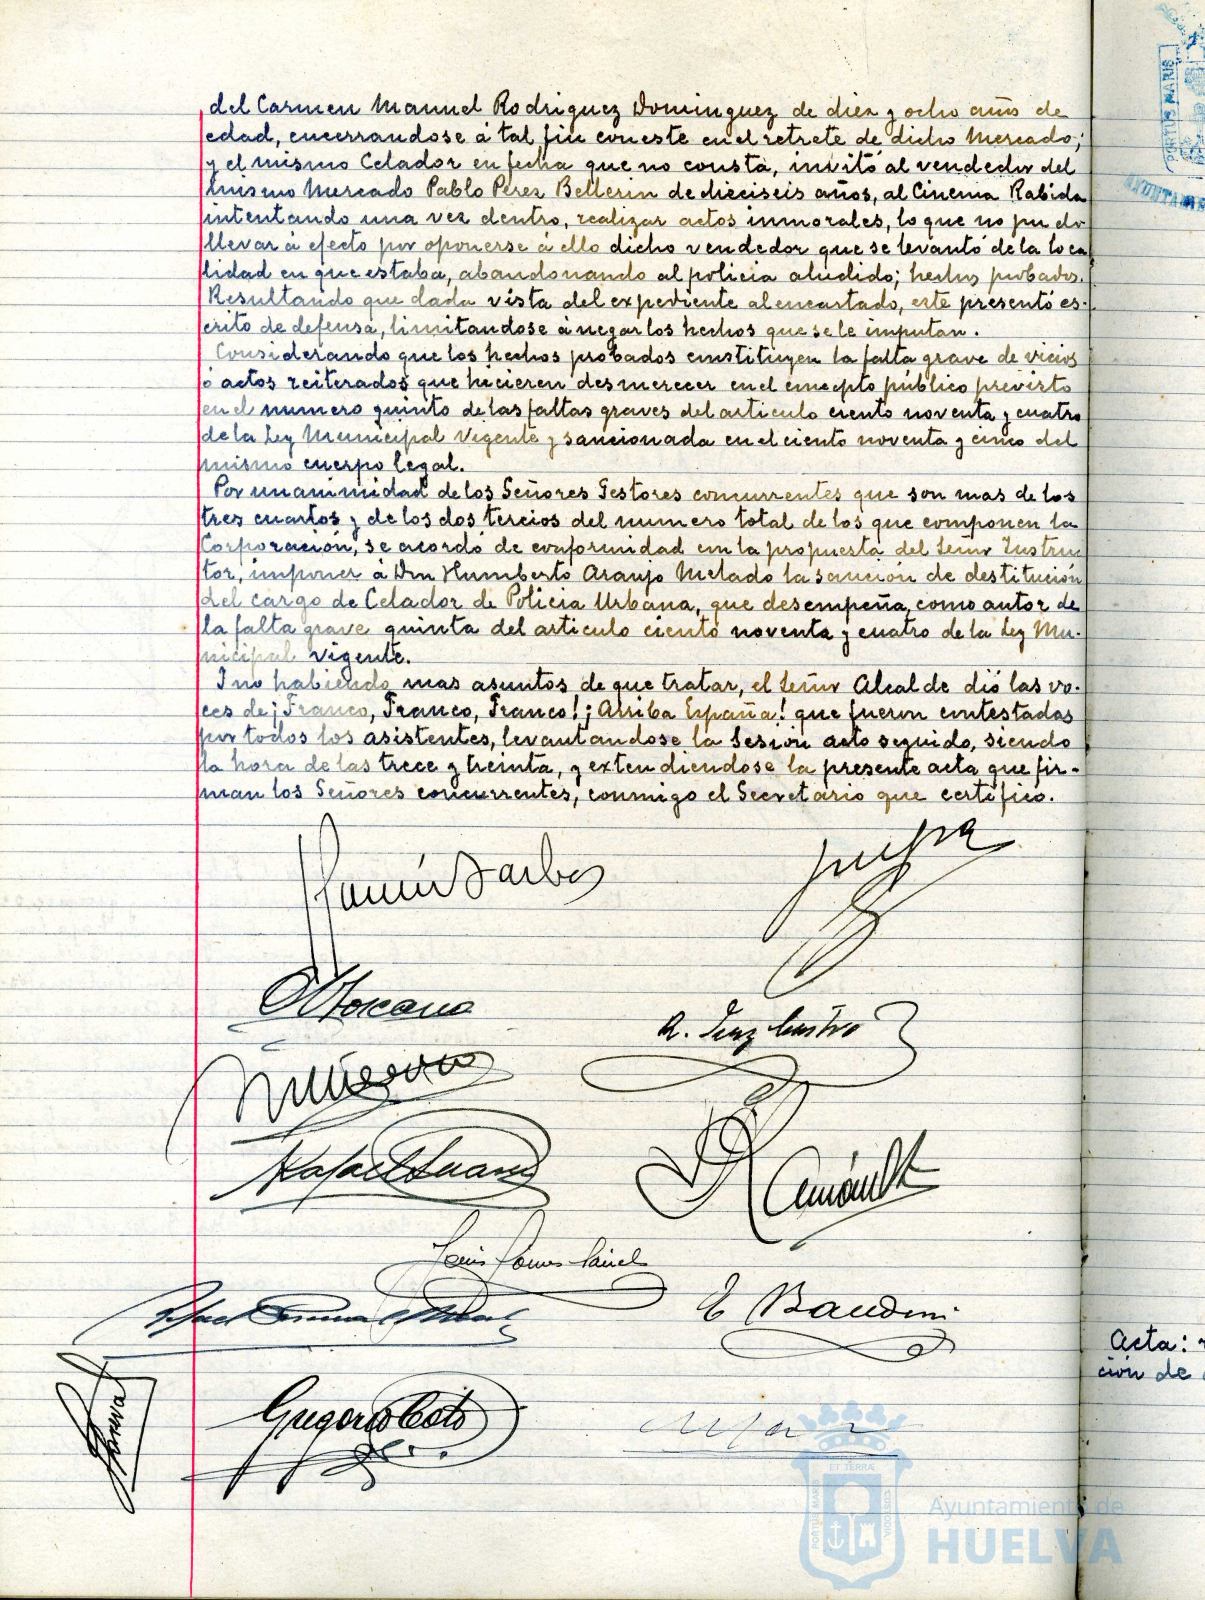 del Carmen Manuel Rodriguez Dominguez de diez y ocho año de
edad, encerrandose á tal fin con este en el retrete de dicho Mercado;
y el mismo Celador en fecha que no consta, invitó al vendedor del
mismo Mercado Pablo Pérez Bellerin de dieciseis años, al Cinema Rabida
intentando una vez dentro, realizar actos inmorales, lo que no pudo
llevar á efecto por oponerse á ello dicho vendedor que se levantó de la loca
lidad en que estaba, abandonando al policia aludido; hechos probados.
Resultando que dada vista del expediente al encartado, este presentó es-
crito de defensa, limitandose á negar los hechos que se le imputan.
Considerando que los hechos probados constituyen la falta grave de vicios
ó actos reiterados que hicieren desmerecer en el concepto público previsto
en el numero quinto de las faltas graves del articulo ciento noventa y cuatro
de la Ley Municipal vigente y sancionada en el ciento noventa y cinco del
mismo cuerpo legal.
Por unanimidad de los Señores Gestores concurrentes que son mas de los
tres cuartos y de los dos tercios del numero total de los que componen la
Corporación, se acordó de conformidad con la propuesta del Señor Instruc
tor, imponer á Don Humberto Araujo Melado la sanción de destitución
del cargo de Celador de Policia Urbana, que desempeña, como autor de
la falta grave quinta del articulo ciento noventa y cuatro de la Ley Mu-
nicipal vigente.
I no habiendo mas asuntos de que tratar, el Señor Alcalde dió las vo-
ces de ¡Franco, Franco, Franco! ¡Arriba España! que fueron contestadas
por todos los asistentes, levantandose la Sesión acto seguido, siendo
la hora de las trece y treinta, y extendiendose la presente acta que fir-
man los Señores concurrentes, conmigo el Secretario que certifico.
Rafael Suarez
E Baudini
Gregorio Coto
Acta:
ción de
PORTUS MARIS
ET TERRÆ
CUSTODIA
Ayuntamiento de
HUELVA